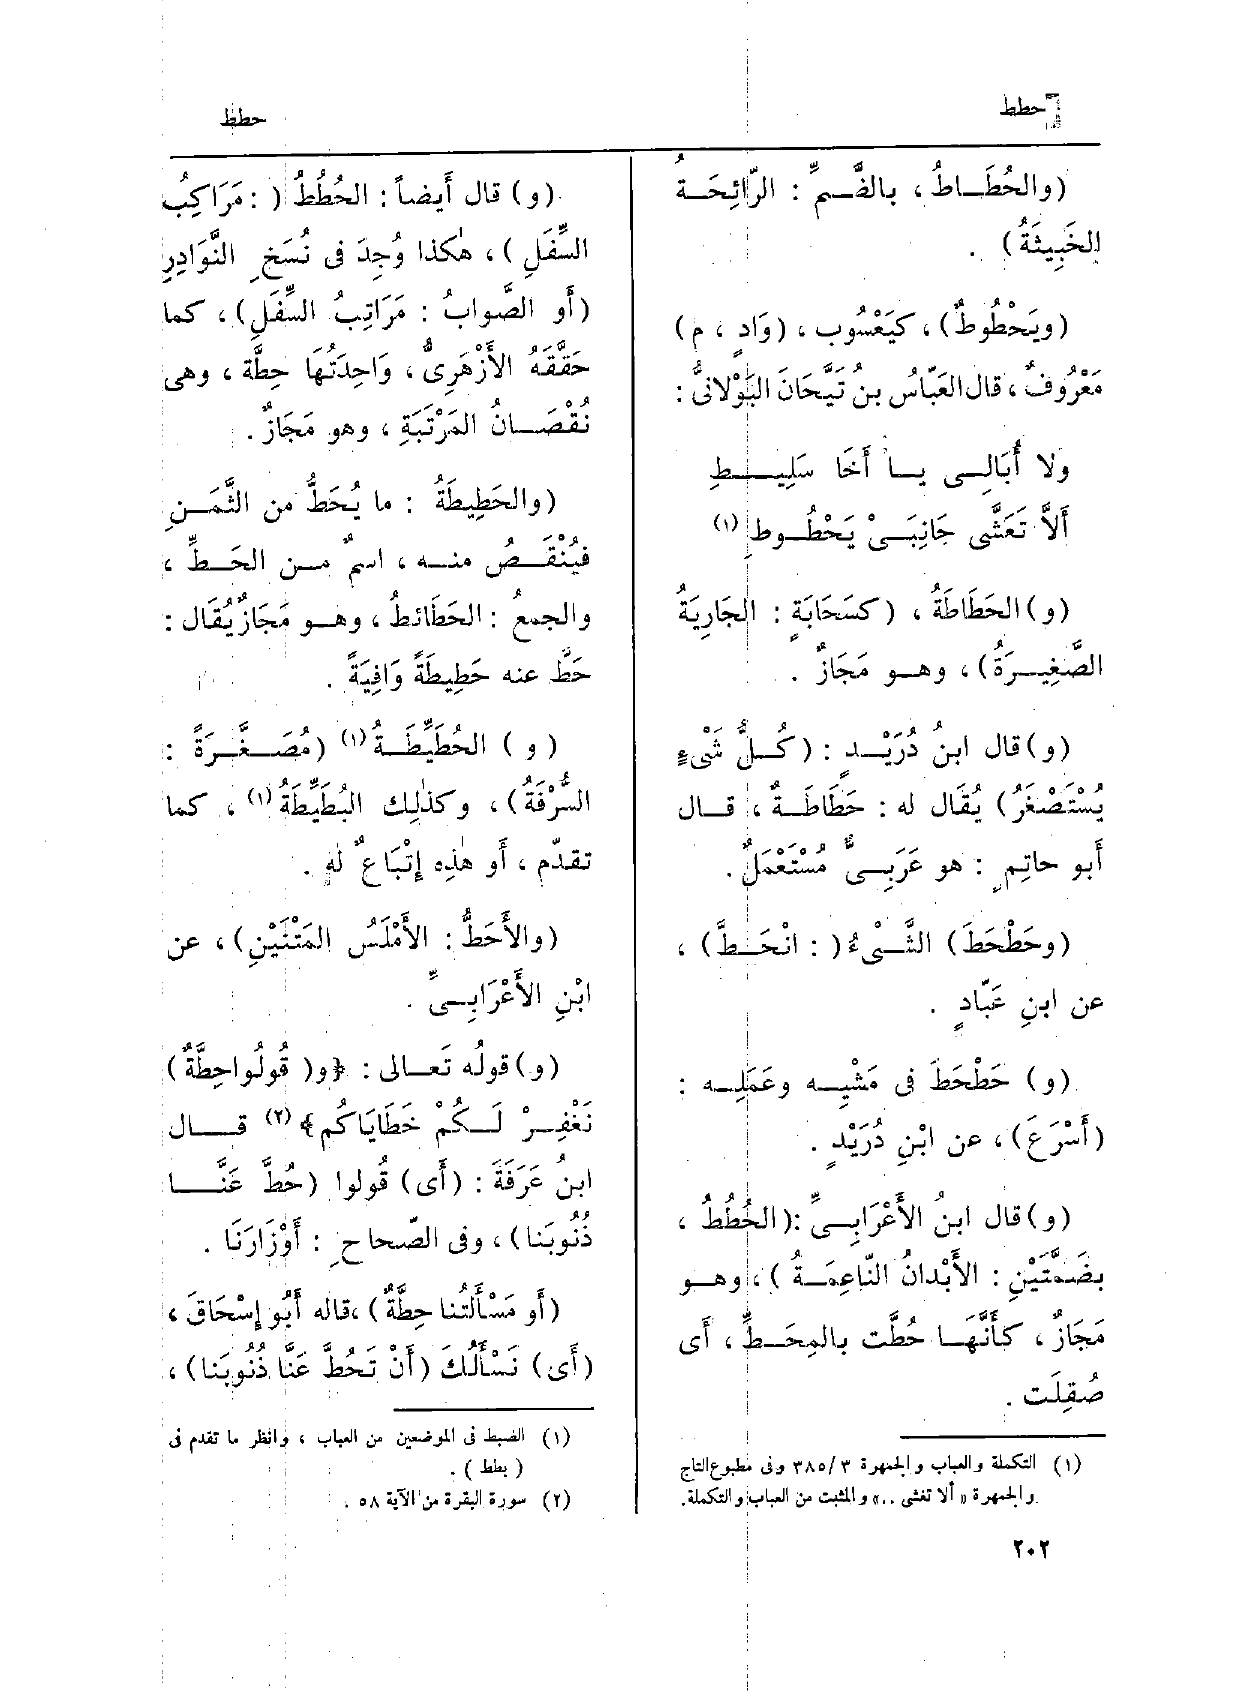 حطط
حطط
(والحُطَـاطُ ، بالضَّـمِّ : الرّائِحَـةُ
الخَبِيثَةُ) .
(ويَحْطُوطٌ)، كيَعْسُوب ، (وَادٍ ، م)
مَعْرُوفٌ ، قال العَبّاسُ بنُ تَيَّحَانَ البَوْلانىُّ :
ولا أُبَالِـى يـا أَخَا سَلِيـطِ
أَلاَّ تَعَشَّى جَانِبَـىْ يَحْطُـوطِ (١)
(و) الحَطَاطَةُ ، (كسَحَابَةٍ : الجَارِيَةُ
الصَّغِيـرَةُ) ، وهـو مَجَازٌ .
(و) قال ابنُ دُرَيْـدٍ : (كُـلُّ شَىْءٍ
يُسْتَصْغَرُ) يُقَال له : حَطَاطَـةٌ ، قـال
أَبو حاتِمٍ : هو عَرَبِـىٌّ مُسْتَعْمَلٌ .
(وحَطْحَطَ) الشَّـىْءُ ( : انْحَـطَّ) ،
عن ابنِ عَبّادٍ .
(و) حَطْحَطَ فى مَشْيِـه وعَمَلِـه :
(أَسْرَعَ) ، عن ابْنِ دُرَيْدٍ .
(و) قال ابنُ الأَعْرَابِـىِّ : (الحُطُطُ ،
بضَمَّتَيْنِ : الأَبْدانُ النّاعِمَـةُ ) ، وهـو
مَجَازٌ ، كأَنَّهَـا حُطَّت بالمِحَـطِّ ، أَى
صُقِلَت .
(١) التكملة والعباب والجمهرة ٣/ ٣٨٥ وفى مطبوع التاج
والجمهرة « ألا تغشى .. » والمثبت من العباب والتكملة.
(و) قال أَيضاً : الحُطُطُ ( : مَرَاكِبُ
السِّفَلِ ) ، هٰكذا وُجِدَ فى نُسَخِ النَّوَادِرِ
(أَو الصَّوابُ : مَرَاتِبُ السِّفَلِ) ، كما
حَقَّقَهُ الأَزْهَرِىُّ ، وَاحِدَتُهَا حِطَّة ، وهى
نُقْصَـانُ المَرْتَبَةِ ، وهو مَجَازٌ .
(والحَطِيطَةُ : ما يُحَطُّ من الثَّمَـنِ
فيُنْقَـصُ منـه ، اسمٌ مـن الحَـطِّ ،
والجمعُ : الحَطَائطُ ، وهـو مَجَازٌ يُقَال :
حَطَّ عنه حَطِيطَةً وَافِيَةً .
(و) الحُطَيِّطَـةُ (١) (مُصَـغَّـرَةً :
السُّرْفَةُ) ، وكذٰلِك البُطَيِّطَةُ (١) ، كما
تقدّم ، أَو هٰذِه إِتْبَاعٌ لَه .
(والأَحَطُّ : الأَمْلَسُ المَتْنَيْنِ) ، عن
ابْنِ الأَعْرَابِـىِّ .
(و) قولُه تَعـالى : ﴿و( قُولُوا حِطَّةٌ)
نَغْفِـرْ لَـكُمْ خَطَايَاكُم﴾ (٢) قـال
ابنُ عَرَفَةَ : (أَى) قُولوا (حُطَّ عَنَّـا
ذُنُوبَنا) ، وفى الصّحاحِ : أَوْزَارَنَا .
(أَو مَسْأَلَتُنا حِطَّةٌ) ، قاله أَبُو إِسْحَاقَ ،
(أَى) نَسْأَلُكَ (أَنْ تَحُطَّ عَنَّا ذُنُوبَنا) ،
(١) الضبط فى الموضعين من العباب ، وانظر ما تقدم فى
( بطط ) .
(٢) سورة البقرة من الآية ٥٨ .
٢٠٢